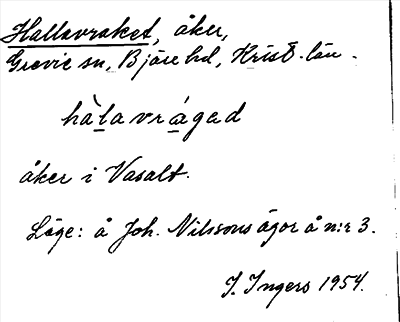 Hallavraket, åker,
Grevie sn, Bjäre hd, Krist. län.
hàlavrágad
åker i Vasalt.
Läge: å Joh. Nilssons ägor å n:r 3.
I. Ingers 1954.